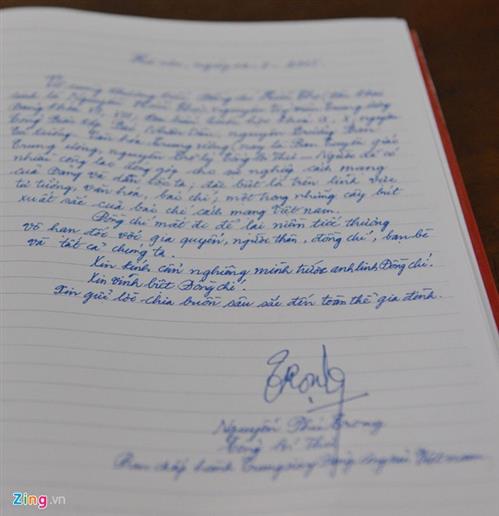 Hà Nội, ngày
Vô cùng thương tiếc đồng chí Hữu Thọ, tên khai
sinh là Nguyễn Hữu Thọ, nguyên Ủy viên Trung ương
Đảng khóa VII, VIII, Đại biểu Quốc hội khóa X, nguyên
Tổng Biên tập Báo Nhân Dân, nguyên Trưởng Ban
Tư tưởng - Văn hóa Trung ương (nay là Ban Tuyên giáo
Trung ương), nguyên Trợ lý Tổng Bí thư - Người đã có
nhiều công lao đóng góp cho sự nghiệp cách mạng
của Đảng và dân tộc ta; đặc biệt là trên lĩnh vực
tư tưởng, văn hóa, báo chí; một trong những cây bút
xuất sắc của báo chí cách mạng Việt Nam.
Đồng chí mất đi để lại niềm tiếc thương
vô hạn đối với gia quyến, người thân, đồng chí, bạn bè
và tất cả chúng ta.
Xin kính cẩn nghiêng mình trước anh linh Đồng chí.
Xin vĩnh biệt Đồng chí!
Xin gửi lời chia buồn sâu sắc đến toàn thể gia đình.
Trọng
Nguyễn Phú Trọng
Tổng Bí thư
Ban chấp hành Trung ương Đảng Cộng sản Việt Nam
Zing.vn